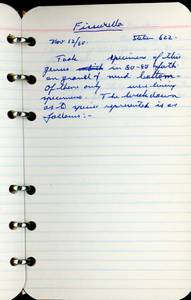 Fissurella
Nov 12/60. Station 602.
Took specimens of this
genus in 30-40 fath
on gravel & mud bottom
Of these only were living
specimens. The breakdown
as to species represented is as
follows:-